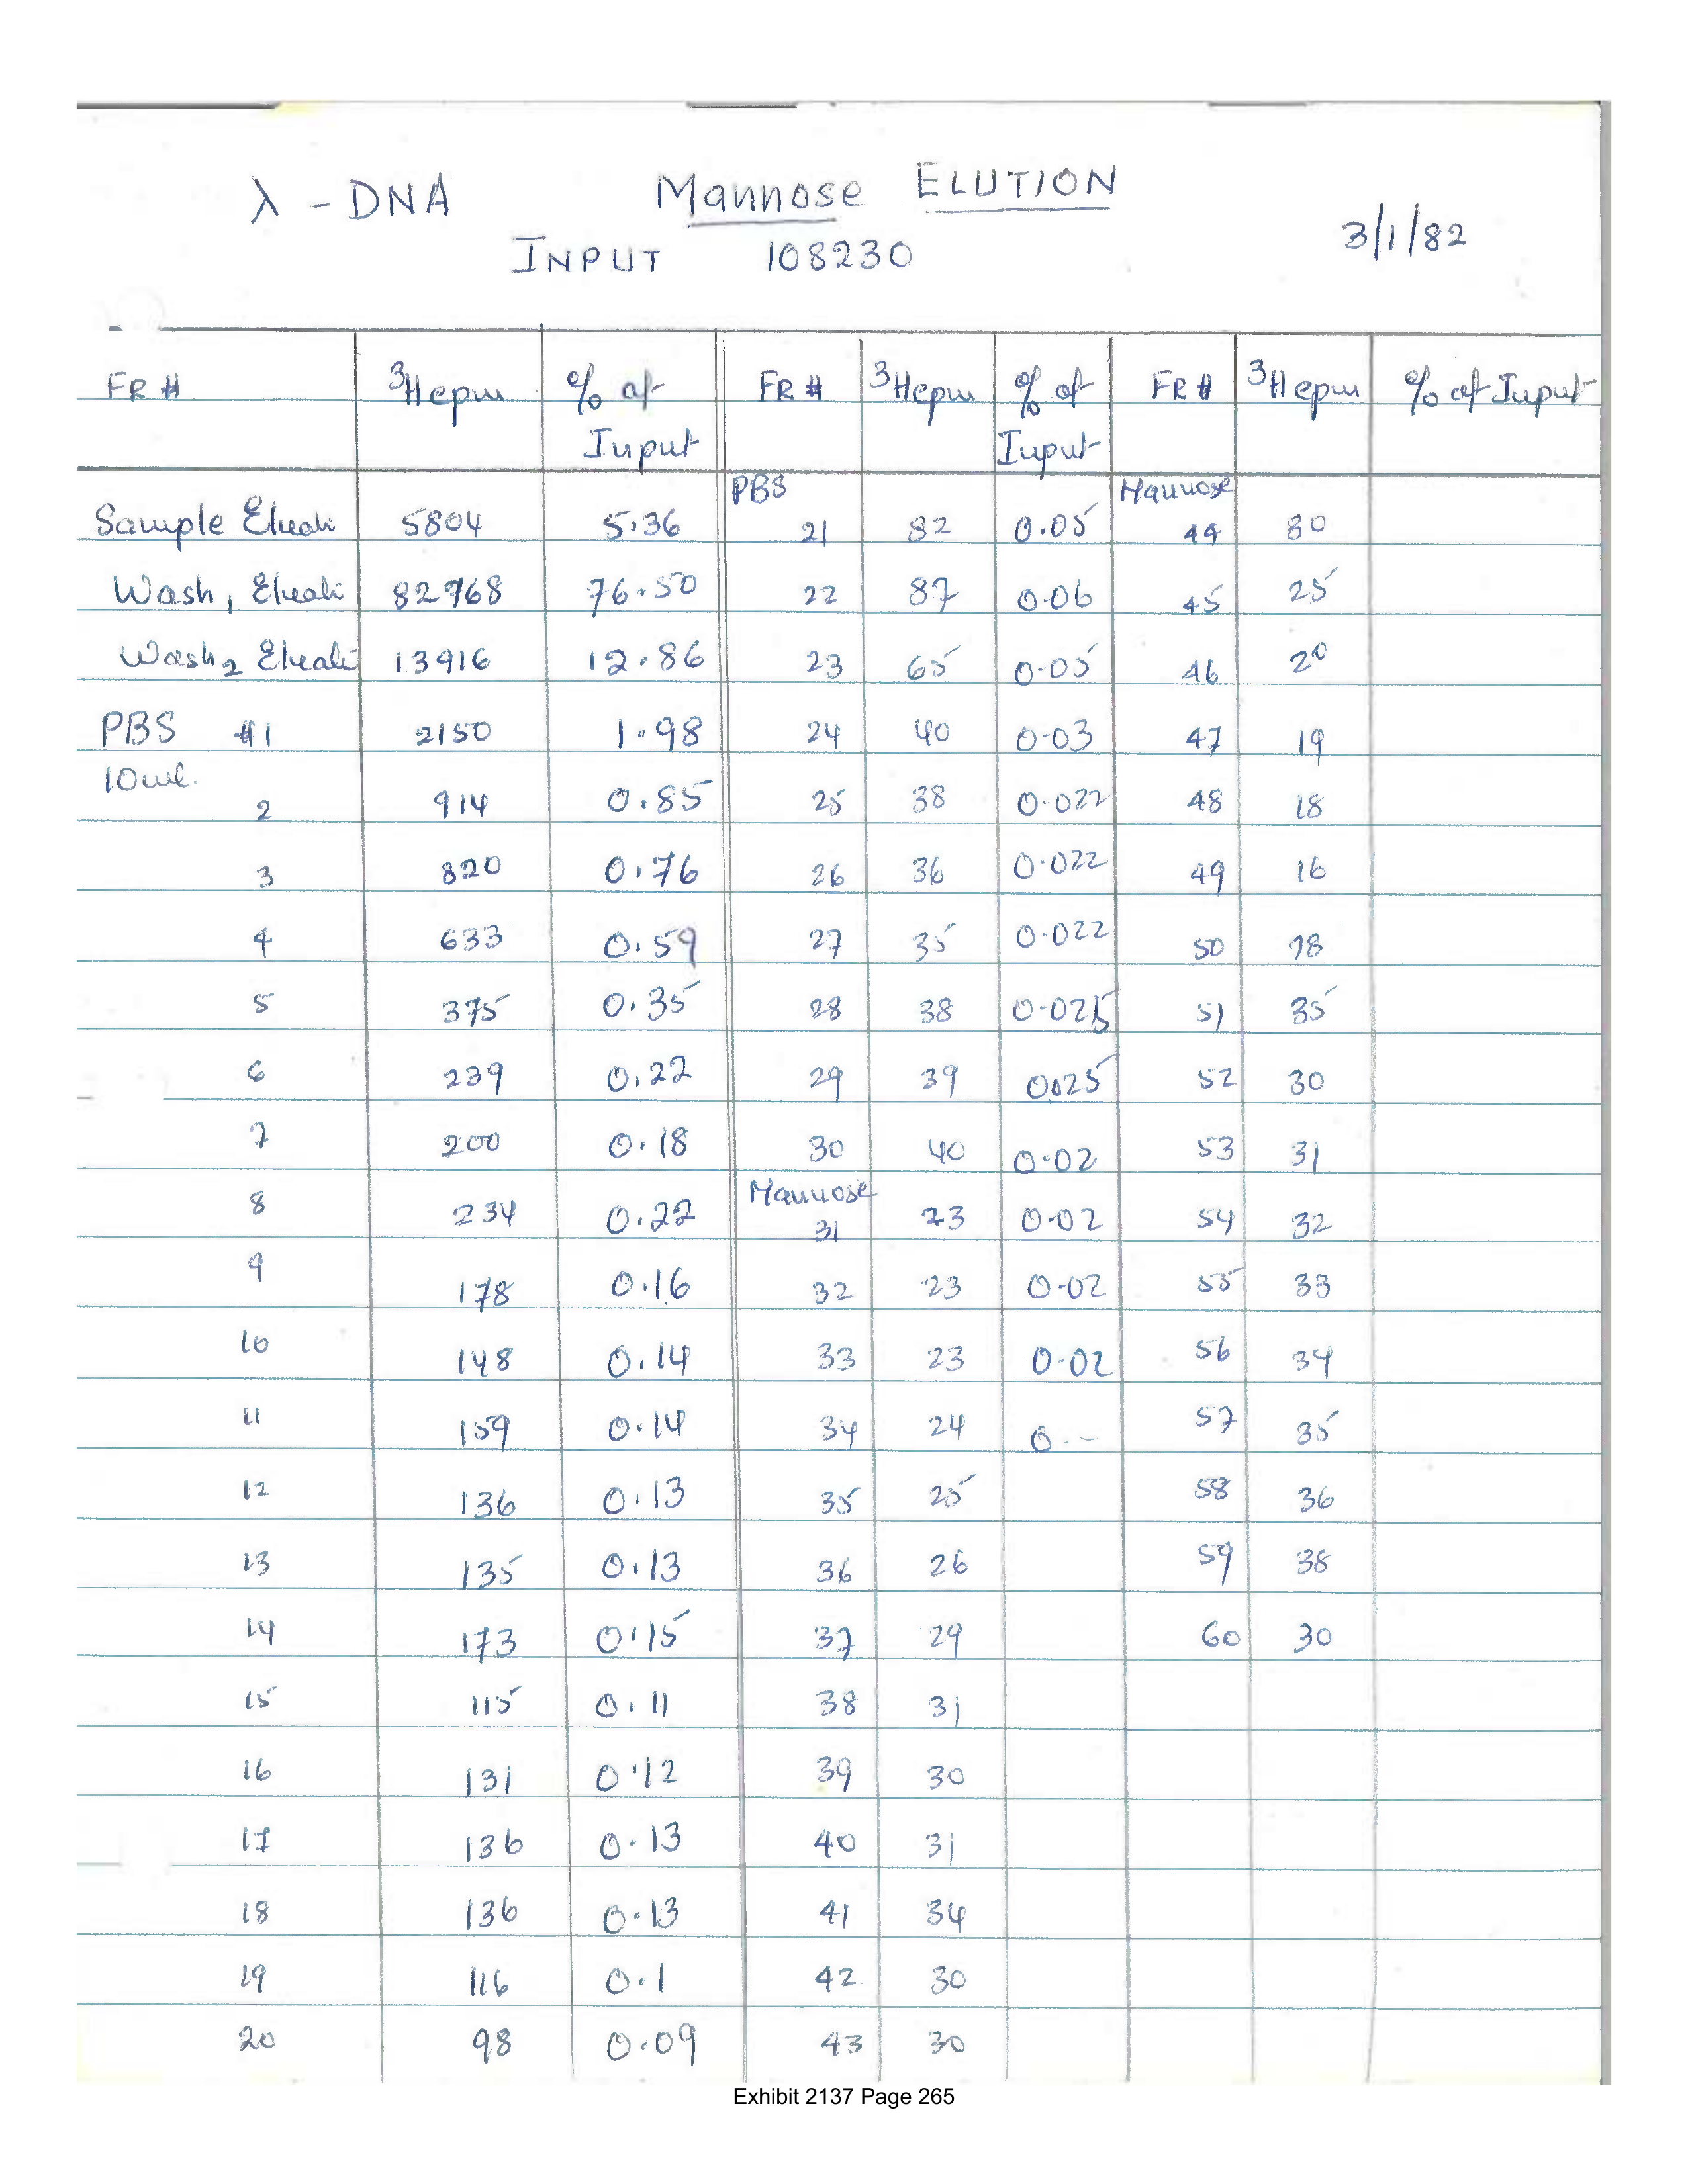 λ - DNA Mannose ELUTION
INPUT 108230 3/1/82
FR # 3Hcpm % of FR # 3Hcpm % of FR # 3Hcpm % of Input
Input Input
PBS Mannose
Sample Eluati 5804 5.36 21 82 0.05 44 30
Wash1 Eluati 82768 76.50 22 87 0.06 45 25
Wash2 Eluati 13916 12.86 23 65 0.05 46 20
PBS #1 2150 1.98 24 40 0.03 47 19
10ml. 2 914 0.85 25 38 0.022 48 18
3 820 0.76 26 36 0.022 49 16
4 633 0.59 27 35 0.022 50 18
5 375 0.35 28 38 0.025 51 35
6 239 0.22 29 39 0.025 52 30
7 200 0.18 30 40 0.02 53 31
Mannose
8 234 0.22 31 23 0.02 54 32
9 178 0.16 32 23 0.02 55 33
10 148 0.14 33 23 0.02 56 34
11 159 0.14 34 24 0.- 57 35
12 136 0.13 35 25 58 36
13 135 0.13 36 26 59 38
14 173 0.15 37 29 60 30
15 115 0.11 38 31
16 131 0.12 39 30
17 136 0.13 40 31
18 136 0.13 41 34
19 116 0.1 42 30
20 98 0.09 43 30
Exhibit 2137 Page 265